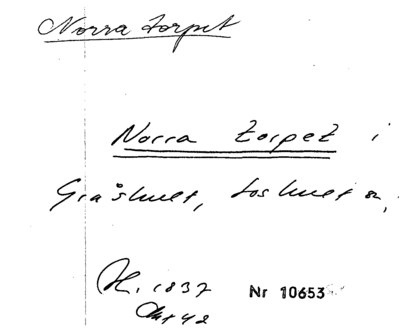 Norra torpet
Norra torpet i
Gråshult, Loshult sn,
H. 1837 Nr 10653